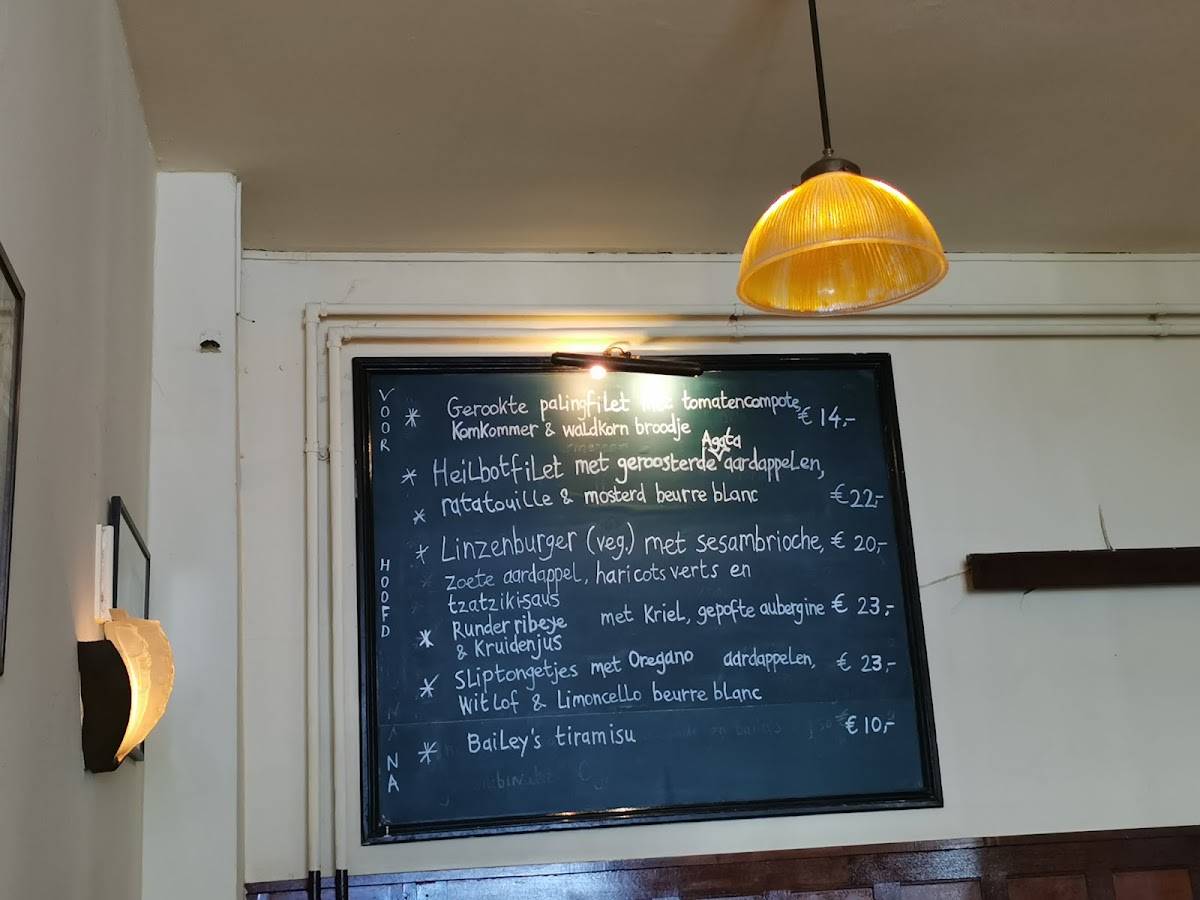 VOOR
* Gerookte palingfilet met tomatencompote € 14,-
Komkommer & waldkorn broodje
Agata
* Heilbotfilet met geroosterde aardappelen,
* ratatouille & mosterd beurre blanc € 22,-
HOOFD
* Linzenburger (veg.) met sesambrioche, € 20,-
zoete aardappel, haricots verts en
tzatziki-saus
* Runder ribeye met Kriel, gepofte aubergine € 23,-
& Kruidenjus
* Sliptongetjes met Oregano aardappelen, € 23,-
Witlof & Limoncello beurre blanc
NA
* Bailey's tiramisu € 10,-